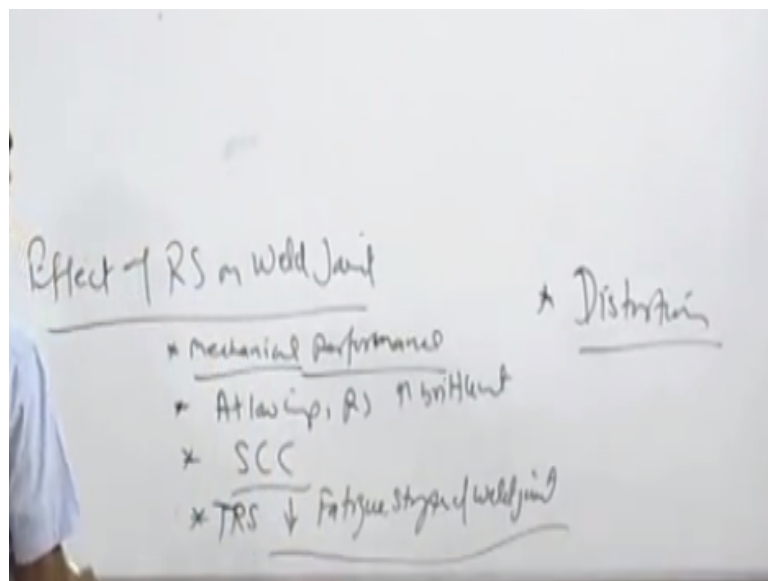 Effect of RS on Weld Joint
* Mechanical Performance
* At low temp, RS ↑ brittleness
* SCC
* TRS ↓ Fatigue strength of weld joint
* Distortion